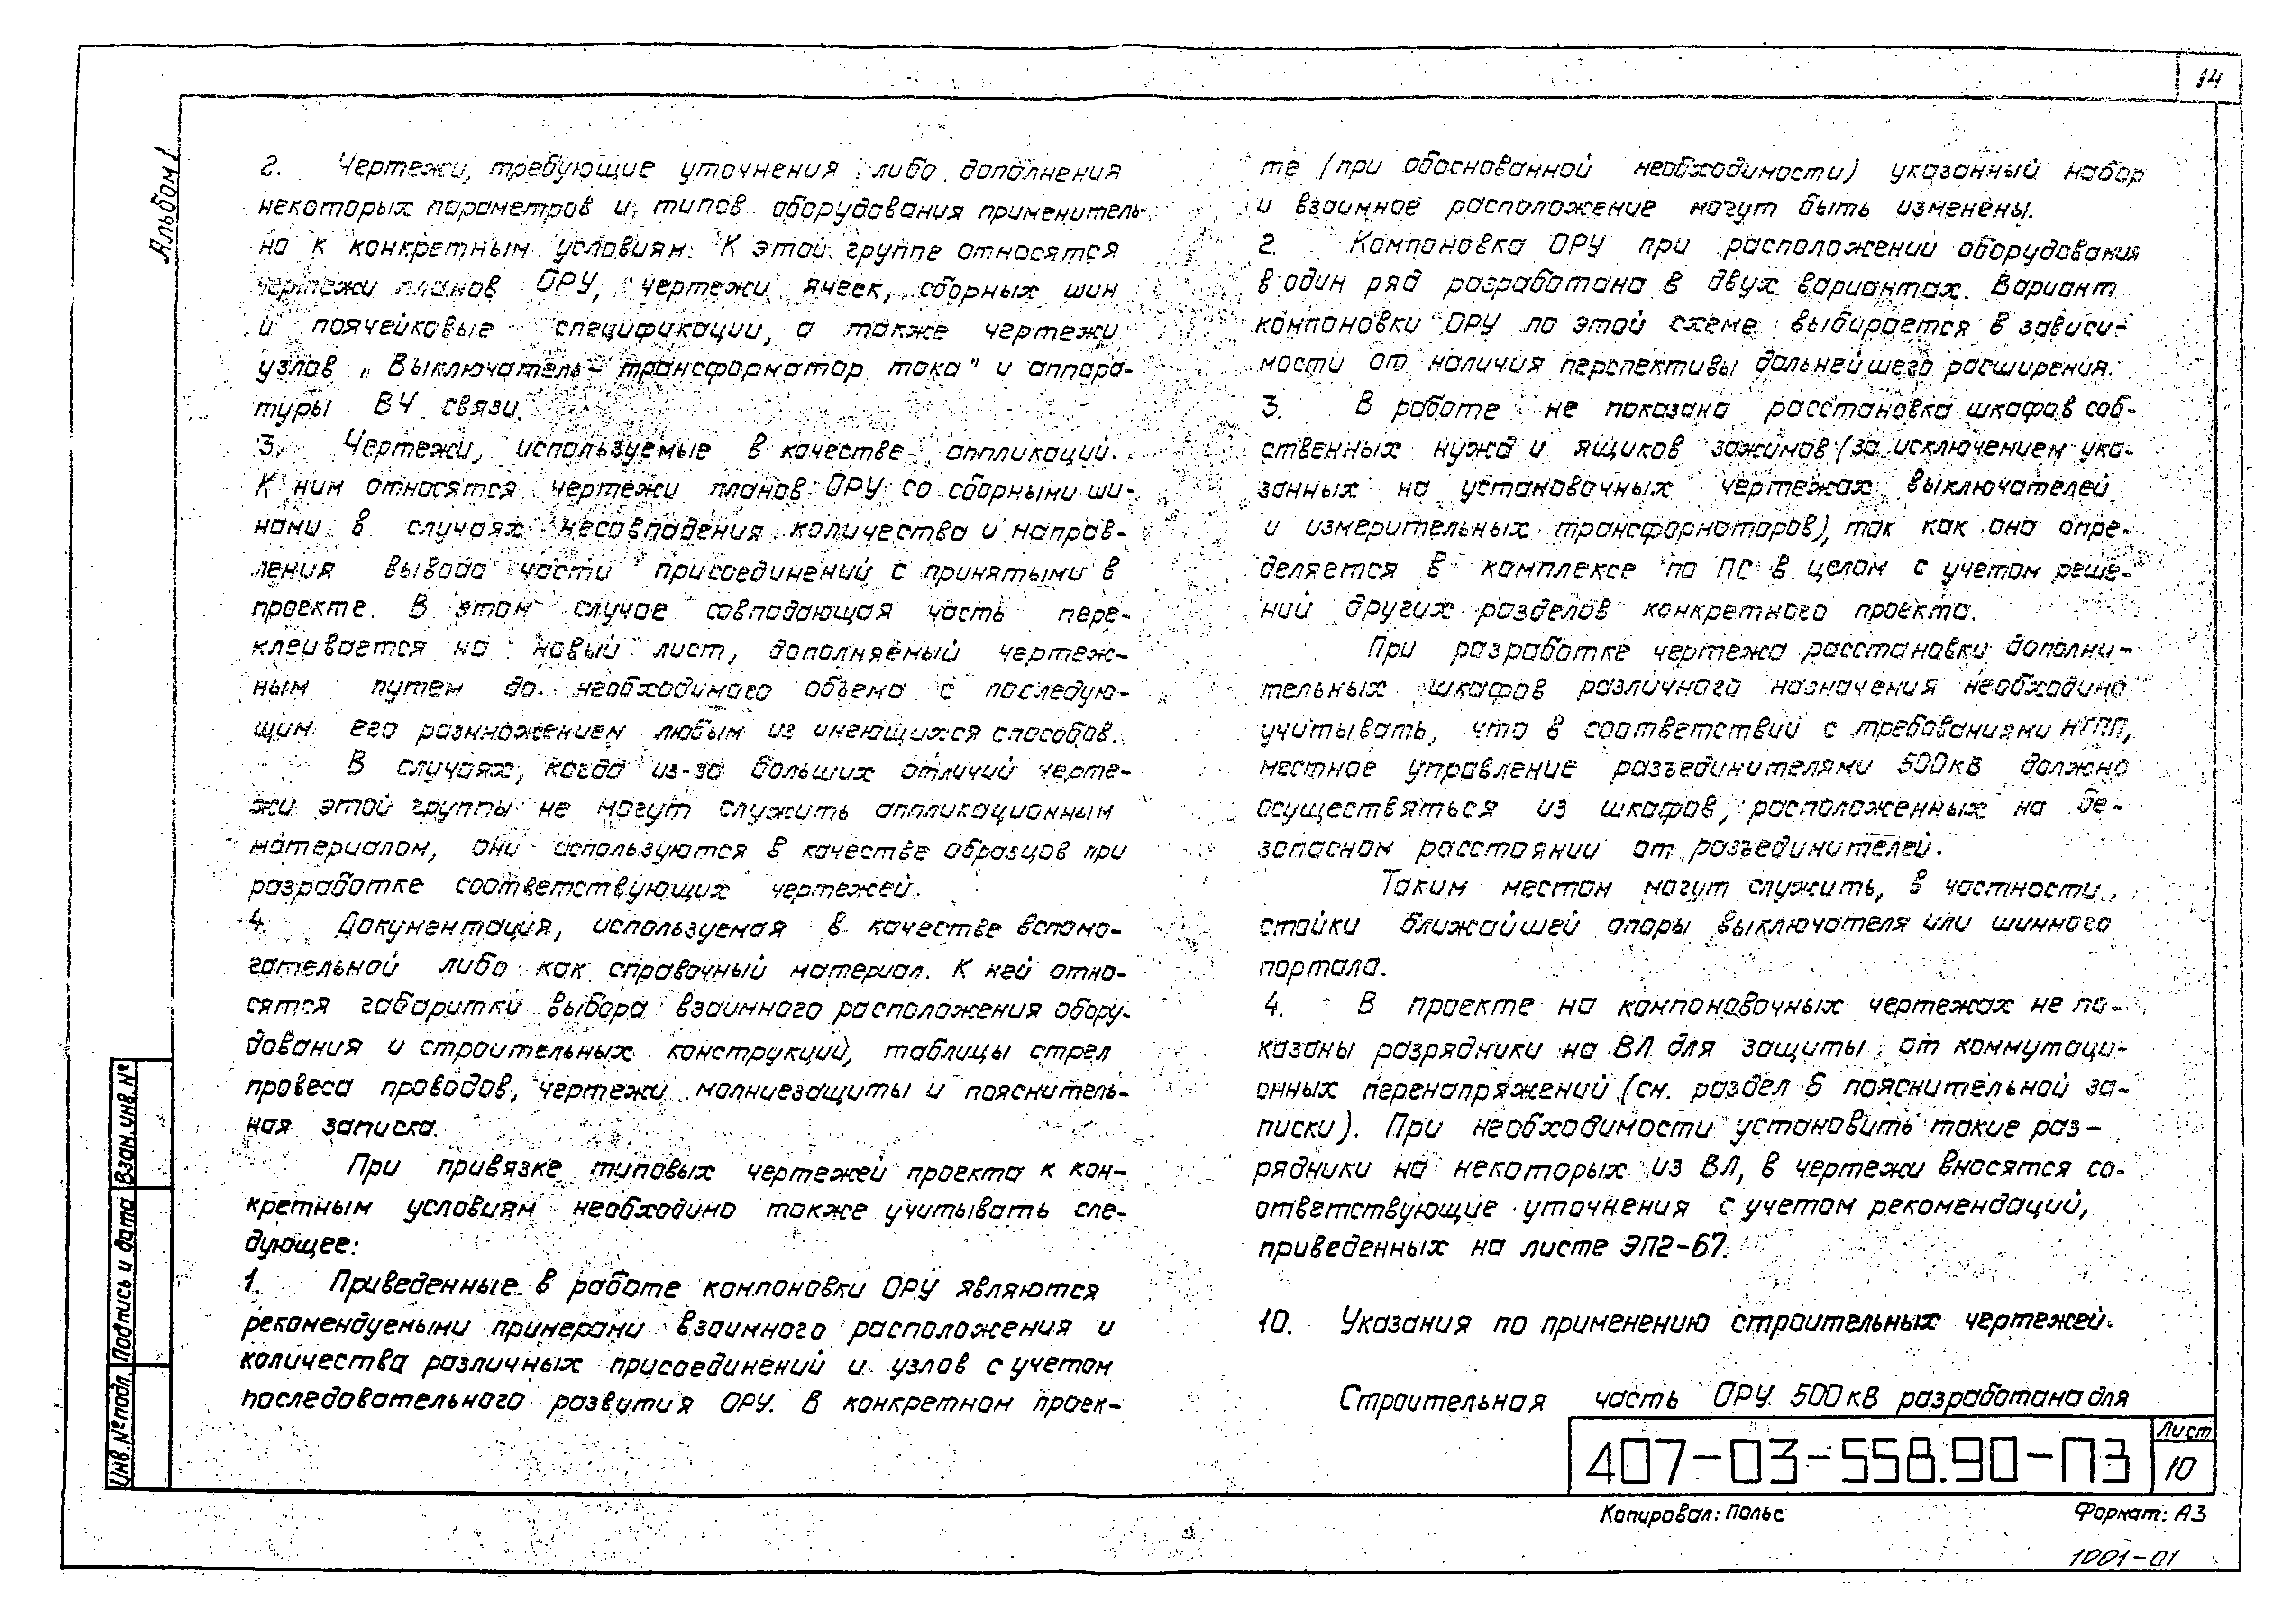 14
Альбом 1
2. Чертежи, требующие уточнения либо дополнения
некоторых параметров и типов оборудования применитель-
но к конкретным условиям. К этой группе относятся
чертежи планов ОРУ, чертежи ячеек, сборных шин
и поячейковые спецификации, а также чертежи
узлов „Выключатель – трансформатор тока" и аппара-
туры ВЧ связи.
3. Чертежи, используемые в качестве аппликаций.
К ним относятся чертежи планов ОРУ со сборными ши-
нами в случаях несовпадения количества и направ-
ления вывода части присоединений с принятыми в
проекте. В этом случае совпадающая часть пере-
клеивается на новый лист, дополняемый чертеж-
ным путем до необходимого объема с последую-
щим его размножением любым из имеющихся способов.
В случаях, когда из-за больших отличий черте-
жи этой группы не могут служить аппликационным
материалом, они используются в качестве образцов при
разработке соответствующих чертежей.
4. Документация, используемая в качестве вспомо-
гательной либо как справочный материал. К ней отно-
сятся габаритки выбора взаимного расположения обору-
дования и строительных конструкций, таблицы стрел
провеса проводов, чертежи молниезащиты и пояснитель-
ная записка.
При привязке типовых чертежей проекта к кон-
кретным условиям необходимо также учитывать сле-
дующее:
1. Приведенные в работе компоновки ОРУ являются
рекомендуемыми примерами взаимного расположения и
количества различных присоединений и узлов с учетом
последовательного развития ОРУ. В конкретном проек-
те (при обоснованной необходимости) указанный набор
и взаимное расположение могут быть изменены.
2. Компоновка ОРУ при расположений оборудования
в один ряд разработана в двух вариантах. Вариант
компоновки ОРУ по этой схеме выбирается в зависи-
мости от наличия перспективы дальнейшего расширения.
3. В работе не показана расстановка шкафов соб-
ственных нужд и ящиков зажимов (за исключением ука-
занных на установочных чертежах выключателей
и измерительных трансформаторов), так как она опре-
деляется в комплексе по ПС в целом с учетом реше-
ний других разделов конкретного проекта.
При разработке чертежа расстановки дополни-
тельных шкафов различного назначения необходимо
учитывать, что в соответствий с требованиями НТПП,
местное управление разъединителями 500кВ должно
осуществяться из шкафов, расположенных на бе-
запасном расстоянии от разъединителей.
Таким местом могут служить, в частности,
стойки ближайшей опоры выключателя или шинного
портала.
4. В проекте на компоновочных чертежах не по-
казаны разрядники на ВЛ для защиты от коммутаци-
онных перенапряжений (см. раздел 6 пояснительной за-
писки). При необходимости установить такие раз-
рядники на некоторых из ВЛ, в чертежи вносятся со-
ответствующие уточнения с учетом рекомендаций,
приведенных на листе ЭП2-67.
10. Указания по применению строительных чертежей.
Строительная часть ОРУ 500кВ разработана для
Инв.№подл. Подпись и дата Взам.инв.№
407-03-558.90-ПЗ
Лист
10
Копировал: Польс
Формат: А3
1001-01